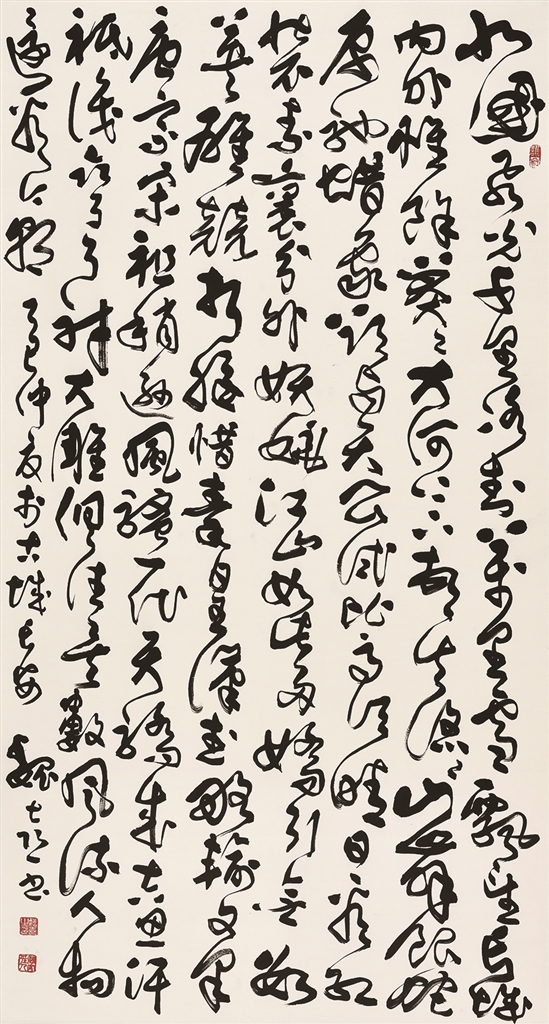 北國風光千里冰封萬里雪飄望長城
内外惟餘莽々大河上下頓失滔々山舞銀蛇
原馳蠟象欲與天公試比高須晴日看紅
裝素裹分外妖嬈江山如此多嬌引無數
英雄競折腰惜秦皇漢武略輸文采
唐宗宋祖稍遜風騷一代天驕成吉思汗
祇識彎弓射大雕俱往矣數風流人物
還看今朝 乙巳仲夏於古城長安 魏 書